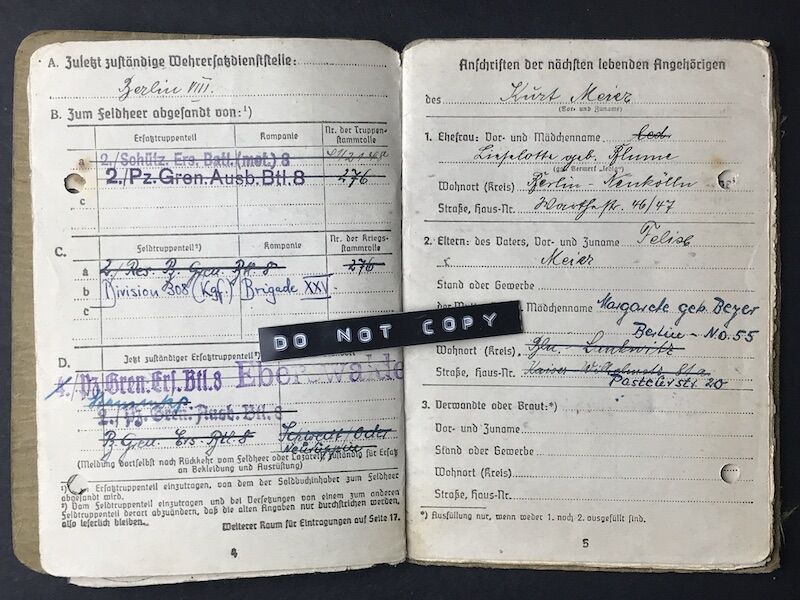 A. Zuletzt zuständige Wehrersatzdienststelle:
Berlin VIII.
B. Zum Feldheer abgesandt von:¹)
Ersatztruppenteil Kompanie Nr. der Truppenstammrolle
a 2./Schütz. Ers. Batl. (mot.) 8
b 2./Pz.Gren.Ausb.Btl.8 276
c
C. Feldtruppenteil²) Kompanie Nr. der Kriegsstammrolle
a 2./Res. Pz. Gren. Btl. 8 276
b Division 308 (Kgf.) Brigade XXV
c
D. Jetzt zuständiger Ersatztruppenteil²)
Pz.Gren.Ers.Btl.8 Eberswalde
2./Pz.Gren.Ausb.Btl.8
Pz Gren Ers Btl. 8 Schwedt/Oder
Neuruppin
(Meldung dortselbst nach Rückkehr vom Feldheer oder Lazarett, zuständig für Ersatz
an Bekleidung und Ausrüstung)
¹) Ersatztruppenteil einzutragen, von dem der Soldbuchinhaber zum Feldheer
abgesandt wird.
²) Vom Feldtruppenteil einzutragen und bei Versetzungen von einem zum anderen
Feldtruppenteil derart abzuändern, daß die alten Angaben nur durchstrichen werden,
also leserlich bleiben.
Weiterer Raum für Eintragungen auf Seite 17.
4
DO NOT COPY
Anschriften der nächsten lebenden Angehörigen
des Kurt Meier
(Vor- und Zuname)
1. Ehefrau: Vor- und Mädchenname led.
Lieselotte geb. Blume
(ggf. Vermerk „ledig")
Wohnort (Kreis) Berlin-Neukölln
Straße, Haus-Nr. Warthestr. 46/47
2. Eltern: des Vaters, Vor- und Zuname Felix
Meier
Stand oder Gewerbe
der Mädchenname Margarete geb. Beyer
Berlin-N.O.55
Wohnort (Kreis) Bln.-Lankwitz
Straße, Haus-Nr. Kaiser Wilhelmstr. 81a
Pasteurstr. 20
3. Verwandte oder Braut:*)
Vor- und Zuname
Stand oder Gewerbe
Wohnort (Kreis)
Straße, Haus-Nr.
*) Ausfüllung nur, wenn weder 1. noch 2. ausgefüllt sind.
5